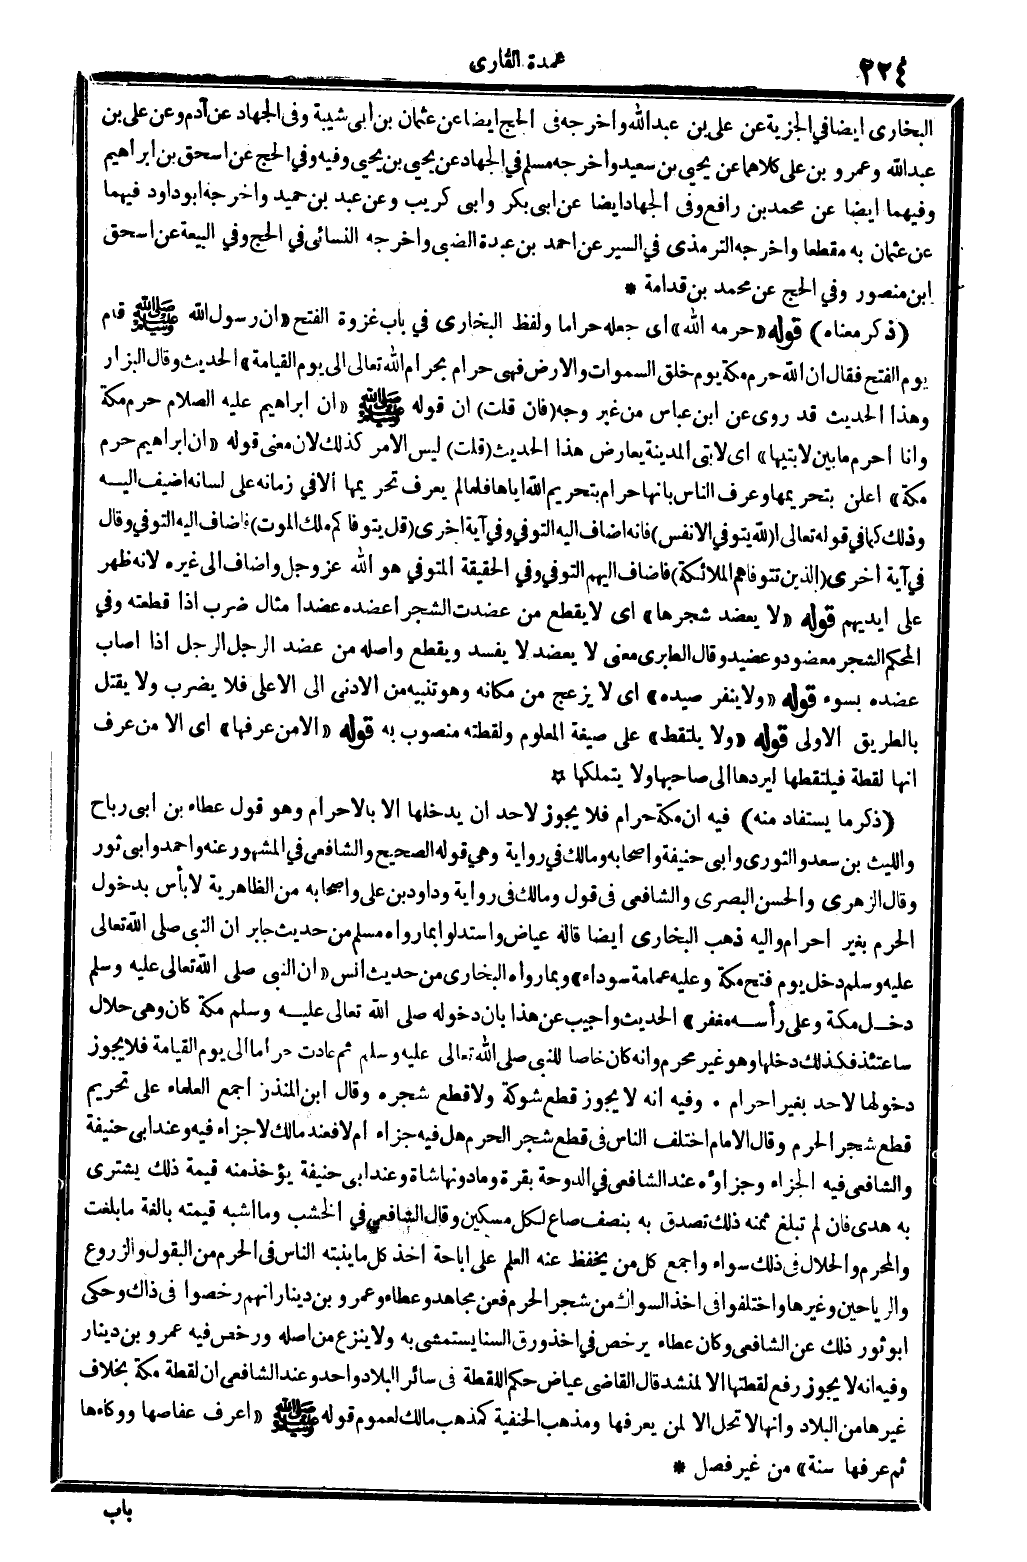 ٢٢٤
عمدة القارى
البخارى ايضا في الجزية عن على بن عبدالله واخرجه فى الحج ايضا عن عثمان بن ابى شيبة وفى الجهاد عن آدم وعن على بن
عبدالله وعمرو بن على كلاهما عن يحيى بن سعيد واخرجه مسلم في الجهاد عن يحيى بن يحيى وفيه وفي الحج عن اسحق بن ابراهيم
وفيهما ايضا عن محمد بن رافع وفى الجهاد ايضا عن ابى بكر وابى كريب وعن عبد بن حميد واخرجه ابو داود فيهما
عن عثمان به مقطعا واخرجه الترمذى في السير عن احمد بن عبدة الضبى واخرجه النسائى في الحج وفي البيعة عن اسحق
ابن منصور وفي الحج عن محمد بن قدامة *
(ذكر معناه) قوله «حرمه الله» اى جعله حراما ولفظ البخارى في باب غزوة الفتح «ان رسول الله ﷺ قام
يوم الفتح فقال ان الله حرم مكة يوم خلق السموات والارض فهى حرام بحرام الله تعالى الى يوم القيامة» الحديث وقال البزار
وهذا الحديث قد روى عن ابن عباس من غير وجه (فان قلت) ان قوله ﷺ «ان ابراهيم عليه الصلام حرم مكة
وانا احرم ما بين لابتيها» اى لابتى المدينة يعارض هذا الحديث (قلت) ليس الامر كذلك لان معنى قوله «ان ابراهيم حرم
مكة» اعلن بتحريمها وعرف الناس بانها حرام بتحريم الله اياها فلما لم يعرف تحريمها الا في زمانه على لسانه اضيف اليه
وذلك كما في قوله تعالى (الله يتوفي الانفس) فانه اضاف اليه التوفي وفي آية اخرى (قل يتوفاكم ملك الموت) فاضاف اليه التوفي وقال
في آية اخرى (الذين تتوفاهم الملائكة) فاضاف اليهم التوفي وفي الحقيقة المتوفي هو الله عز وجل واضاف الى غيره لانه ظهر
على ايديهم قوله «لا يعضد شجرها» اى لا يقطع من عضدت الشجر اعضده عضدا مثال ضرب اذا قطعته وفي
المحكم الشجر معضود وعضيد وقال الطابرى معنى لا يعضد لا يفسد ويقطع واصله من عضد الرجل الرجل اذا اصاب
عضده بسوء قوله «ولا ينفر صيده» اى لا يزعج من مكانه وهو تنبيه من الادنى الى الاعلى فلا يضرب ولا يقتل
بالطريق الاولى قوله «ولا يلتقط» على صيغة المعلوم ولقطته منصوب به قوله «الا من عرفها» اى الا من عرف
انها لقطة فيلتقطها ليردها الى صاحبها ولا يتملكها ☆
(ذكر ما يستفاد منه) فيه ان مكة حرام فلا يجوز لاحد ان يدخلها الا بالاحرام وهو قول عطاء بن ابى رباح
والليث بن سعد والثورى وابى حنيفة واصحابه ومالك في رواية وهي قوله الصحيح والشافعى في المشهور عنه واحمد وابى ثور
وقال الزهرى والحسن البصرى والشافعى فى قول ومالك فى رواية وداود بن على واصحابه من الظاهرية لا بأس بدخول
الحرم بغير احرام واليه ذهب البخارى ايضا قاله عياض واستدلوا بما رواه مسلم من حديث جابر ان النبى صلى الله تعالى
عليه وسلم دخل يوم فتح مكة وعليه عمامة سوداء» وبما رواه البخارى من حديث انس «ان النبى صلى الله تعالى عليه وسلم
دخل مكة وعلى رأسه مغفر» الحديث واجيب عن هذا بان دخوله صلى الله تعالى عليه وسلم مكة كان وهى حلال
ساعتئذ فكذلك دخلها وهو غير محرم وانه كان خاصا للنبى صلى الله تعالى عليه وسلم ثم عادت حراما الى يوم القيامة فلا يجوز
دخولها لاحد بغير احرام . وفيه انه لا يجوز قطع شوكة ولا قطع شجره وقال ابن المنذر اجمع العلماء على تحريم
قطع شجر الحرم وقال الامام اختلف الناس فى قطع شجر الحرم هل فيه جزاء ام لا فعند مالك لا جزاء فيه وعند ابى حنيفة
والشافعى فيه الجزاء وجزاؤه عند الشافعى في الدوحة بقرة وما دونها شاة وعند ابى حنيفة يؤخذ منه قيمة ذلك يشترى
به هدى فان لم تبلغ ثمنه ذلك تصدق به بنصف صاع لكل مسكين وقال الشافعى في الخشب وما اشبه قيمته بالغة ما بلغت
والمحرم والحلال فى ذلك سواء واجمع كل من يحفظ عنه العلم على اباحة اخذ كل ما ينبته الناس فى الحرم من البقول والزروع
والرياحين وغيرها واختلفوا فى اخذ السواك من شجر الحرم فعن مجاهد وعطاء وعمرو بن دينار انهم رخصوا فى ذاك وحكى
ابو ثور ذلك عن الشافعى وكان عطاء يرخص في اخذ ورق السنا يستمشى به ولا ينزع من اصله ورخص فيه عمرو بن دينار
وفيه انه لا يجوز رفع لقطتها الا لمنشد قال القاضى عياض حكم اللقطة فى سائر البلاد واحد وعند الشافعى ان لقطة مكة بخلاف
غيرها من البلاد وانها لا تحل الا لمن يعرفها ومذهب الحنفية كمذهب مالك لعموم قوله ﷺ «اعرف عفاصها ووكاءها
ثم عرفها سنة» من غير فصل *
باب